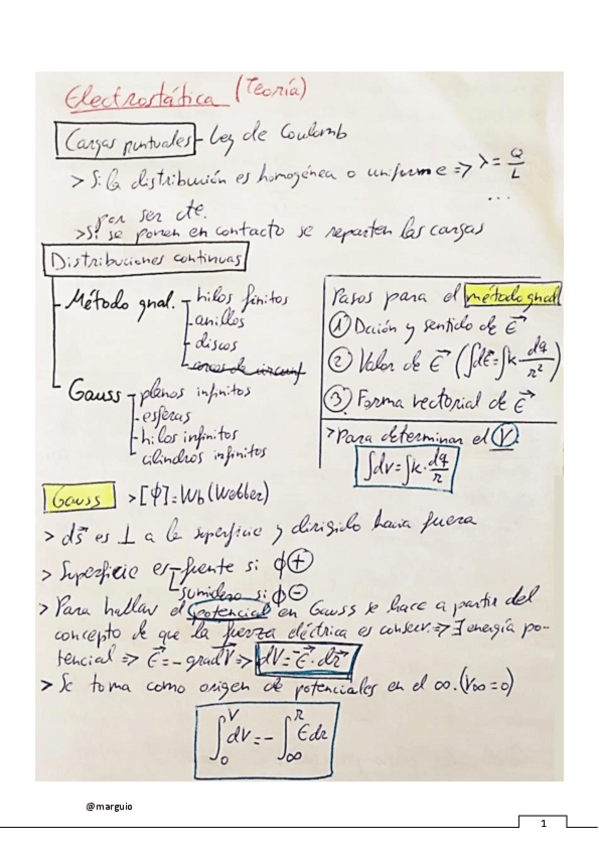 Electrostática (Teoría)
Cargas puntuales - Ley de Coulomb
> Si la distribución es homogénea o uniforme => λ = Q/L
...
por ser cte.
> Si se ponen en contacto se reparten las cargas
Distribuciones continuas
- Método gnal. - hilos finitos
- anillos
- discos
- arcos de circunf
- Gauss - planos infinitos
- esferas
- hilos infinitos
- cilindros infinitos
Pasos para el método gnal
① Dción y sentido de E⃗
② Valor de E⃗ (∫dE⃗=∫k·dq/r²)
③ Forma vectorial de E⃗
> Para determinar el V
∫dv=∫k·dq/r
Gauss > [ϕ]=Wb (Webber)
> ds⃗ es ⊥ a la superficie y dirigido hacia fuera
> Superficie es - fuente si ϕ ⊕
- sumidero si ϕ ⊖
> Para hallar el potencial en Gauss se hace a partir del
concepto de que la fuerza eléctrica es conserv. => ∃ energía po-
tencial => E⃗ = - grad V⃗ => dV = -E⃗·dr⃗
> Se toma como origen de potenciales en el ∞. (V∞ = 0)
∫₀^V dV = - ∫∞^r E dr
@marguio
1